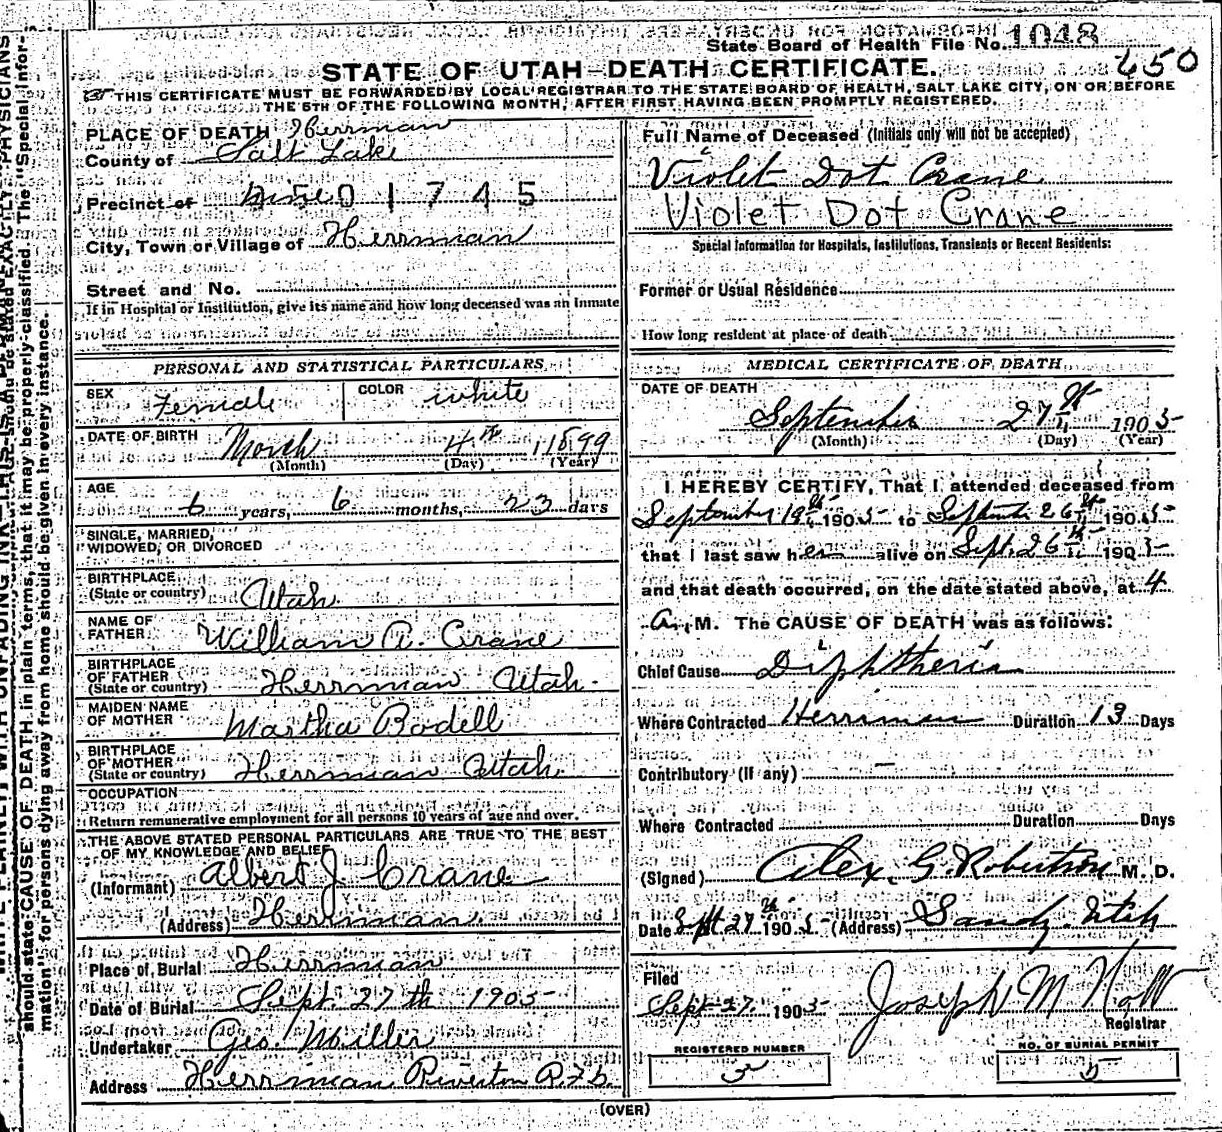 State Board of Health File No. 1048
450
STATE OF UTAH-DEATH CERTIFICATE.
THIS CERTIFICATE MUST BE FORWARDED BY LOCAL REGISTRAR TO THE STATE BOARD OF HEALTH, SALT LAKE CITY, ON OR BEFORE
THE 5TH OF THE FOLLOWING MONTH, AFTER FIRST HAVING BEEN PROMPTLY REGISTERED.
PLACE OF DEATH Herrman
County of Salt Lake
Precinct of 01745
City, Town or Village of Herrman
Street and No.
If in Hospital or Institution, give its name and how long deceased was an Inmate
Full Name of Deceased (Initials only will not be accepted)
Violet Dot Crane
Violet Dot Crane
Special Information for Hospitals, Institutions, Transients or Recent Residents:
Former or Usual Residence
How long resident at place of death
PERSONAL AND STATISTICAL PARTICULARS
SEX Female COLOR white
DATE OF BIRTH March 4th 1899
(Month) (Day) (Year)
AGE
6 years, 6 months, 23 days
SINGLE, MARRIED,
WIDOWED, OR DIVORCED
BIRTHPLACE
(State or country) Utah
NAME OF
FATHER William A. Crane
BIRTHPLACE
OF FATHER
(State or country) Herrman Utah.
MAIDEN NAME
OF MOTHER Martha Bodell
BIRTHPLACE
OF MOTHER
(State or country) Herrman Utah.
OCCUPATION
Return remunerative employment for all persons 10 years of age and over.
THE ABOVE STATED PERSONAL PARTICULARS ARE TRUE TO THE BEST
OF MY KNOWLEDGE AND BELIEF
(Informant) Albert J Crane
(Address) Herrman.
Place of Burial Herrman
Date of Burial Sept. 27th 1905
Undertaker Geo. Miller
Address Herriman Riverton R.F.D.
MEDICAL CERTIFICATE OF DEATH
DATE OF DEATH
September 27th 1905
(Month) (Day) (Year)
I HEREBY CERTIFY, That I attended deceased from
September 19th 1905 to September 26th 1905
that I last saw her alive on Sept. 26th 1905
and that death occurred, on the date stated above, at 4
A. M. The CAUSE OF DEATH was as follows:
Chief Cause Diphtheria
Where Contracted Herriman Duration 13 Days
Contributory (if any) —
Where Contracted Duration Days
(Signed) Alex. G. Robertson M. D.
Date Sept 27th 1905 (Address) Sandy Utah
Filed
Sept 27. 1905 Joseph M Holt
Registrar
REGISTERED NUMBER
3
NO. OF BURIAL PERMIT
5
(OVER)
should state CAUSE OF DEATH in plain terms, that it may be properly classified. The "Special Infor-
mation" for persons dying away from home should be given in every instance.